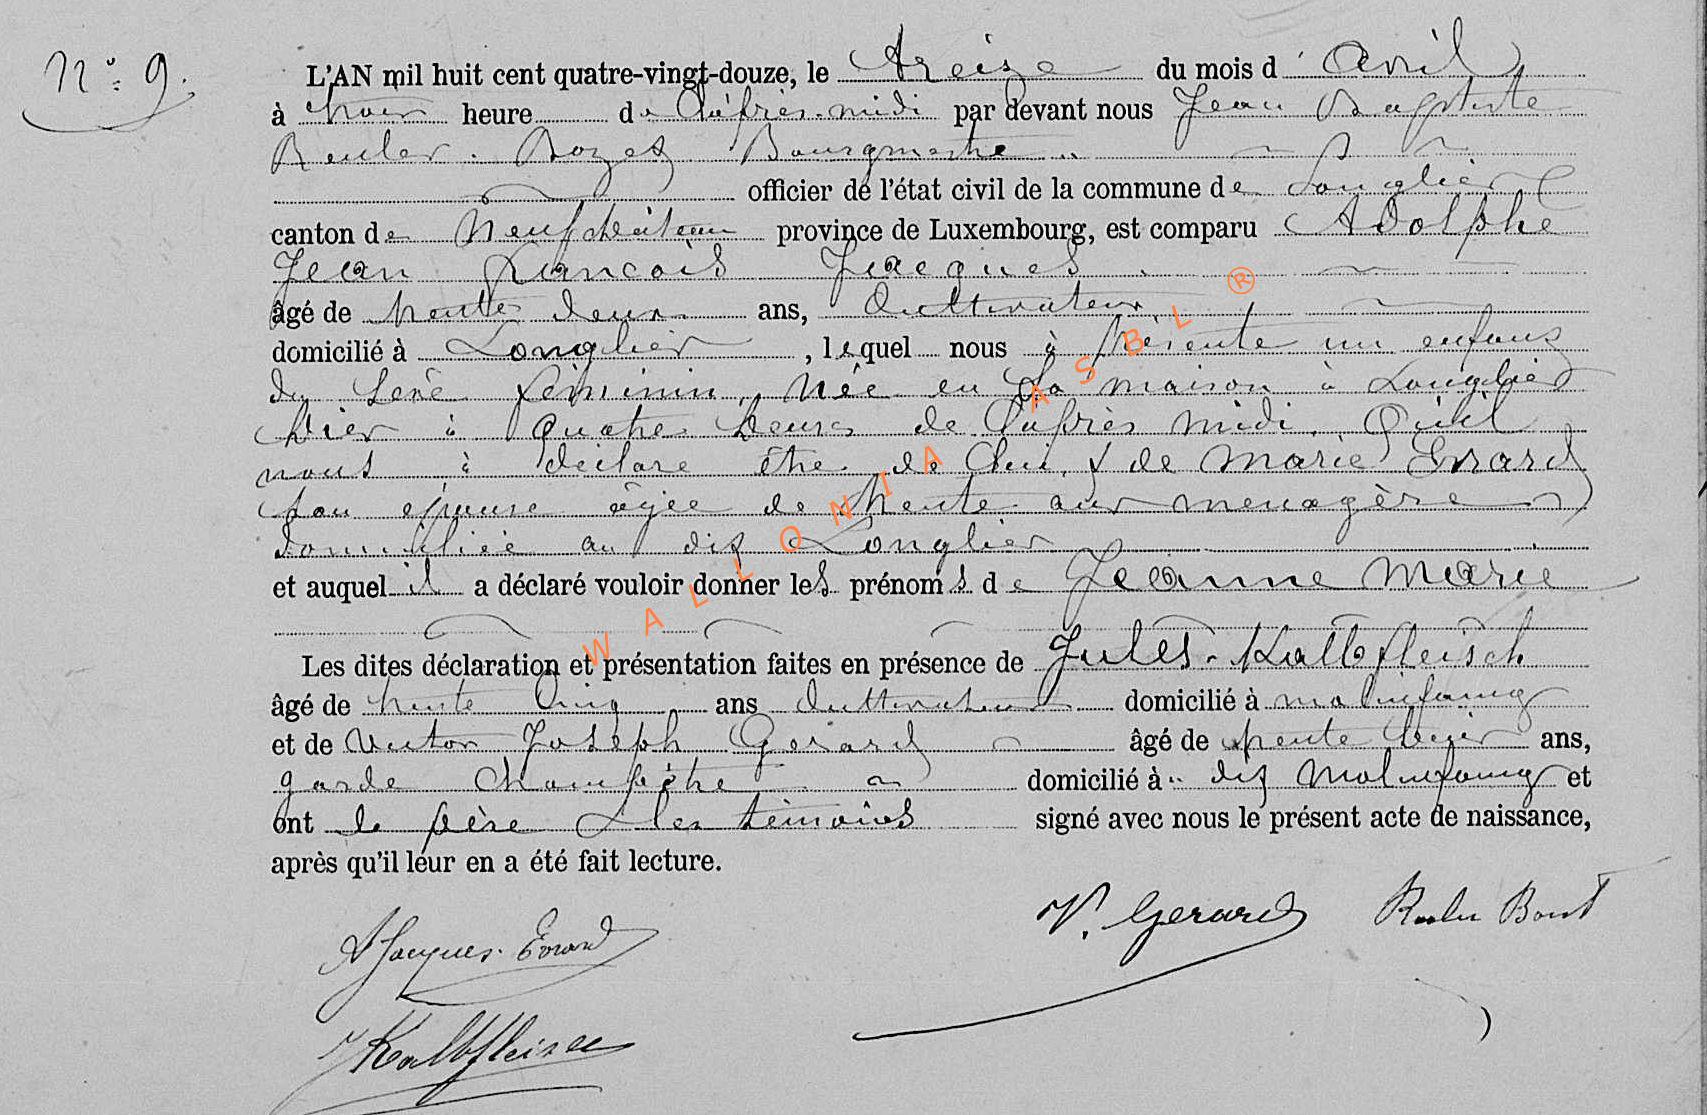 N° 9.
L'AN mil huit cent quatre-vingt-douze, le treize du mois d'Avril
à trois heure de l'après-midi par devant nous Jean Baptiste
Reuler Bozet Bourgmestre
officier de l'état civil de la commune de Longlier
canton de Neufchâteau province de Luxembourg, est comparu Adolphe
Jean François Jacques
âgé de trente deux ans, Cultivateur
domicilié à Longlier, lequel nous à présenté un enfant
du sexe féminin, née en sa maison à Longlier
hier à quatre heures de l'après midi. Qu'il
nous à déclaré être de lui, & de Marie Evrard
son épouse âgée de trente ans menagère
domiciliée au dit Longlier
et auquel il a déclaré vouloir donner les prénoms de Jeanne Marie
Les dites déclaration et présentation faites en présence de Jules Kalbfleisch
âgé de trente cinq ans Cultivateur domicilié à Molinfaing
et de Victor Joseph Gerard âgé de trente ans,
garde champêtre domicilié à dit Molinfaing et
ont le père & les témoins signé avec nous le présent acte de naissance,
après qu'il leur en a été fait lecture.
V. Gerard
A Jacques-Evrard
J Kalbfleisch
WALLONIA ASBL ®